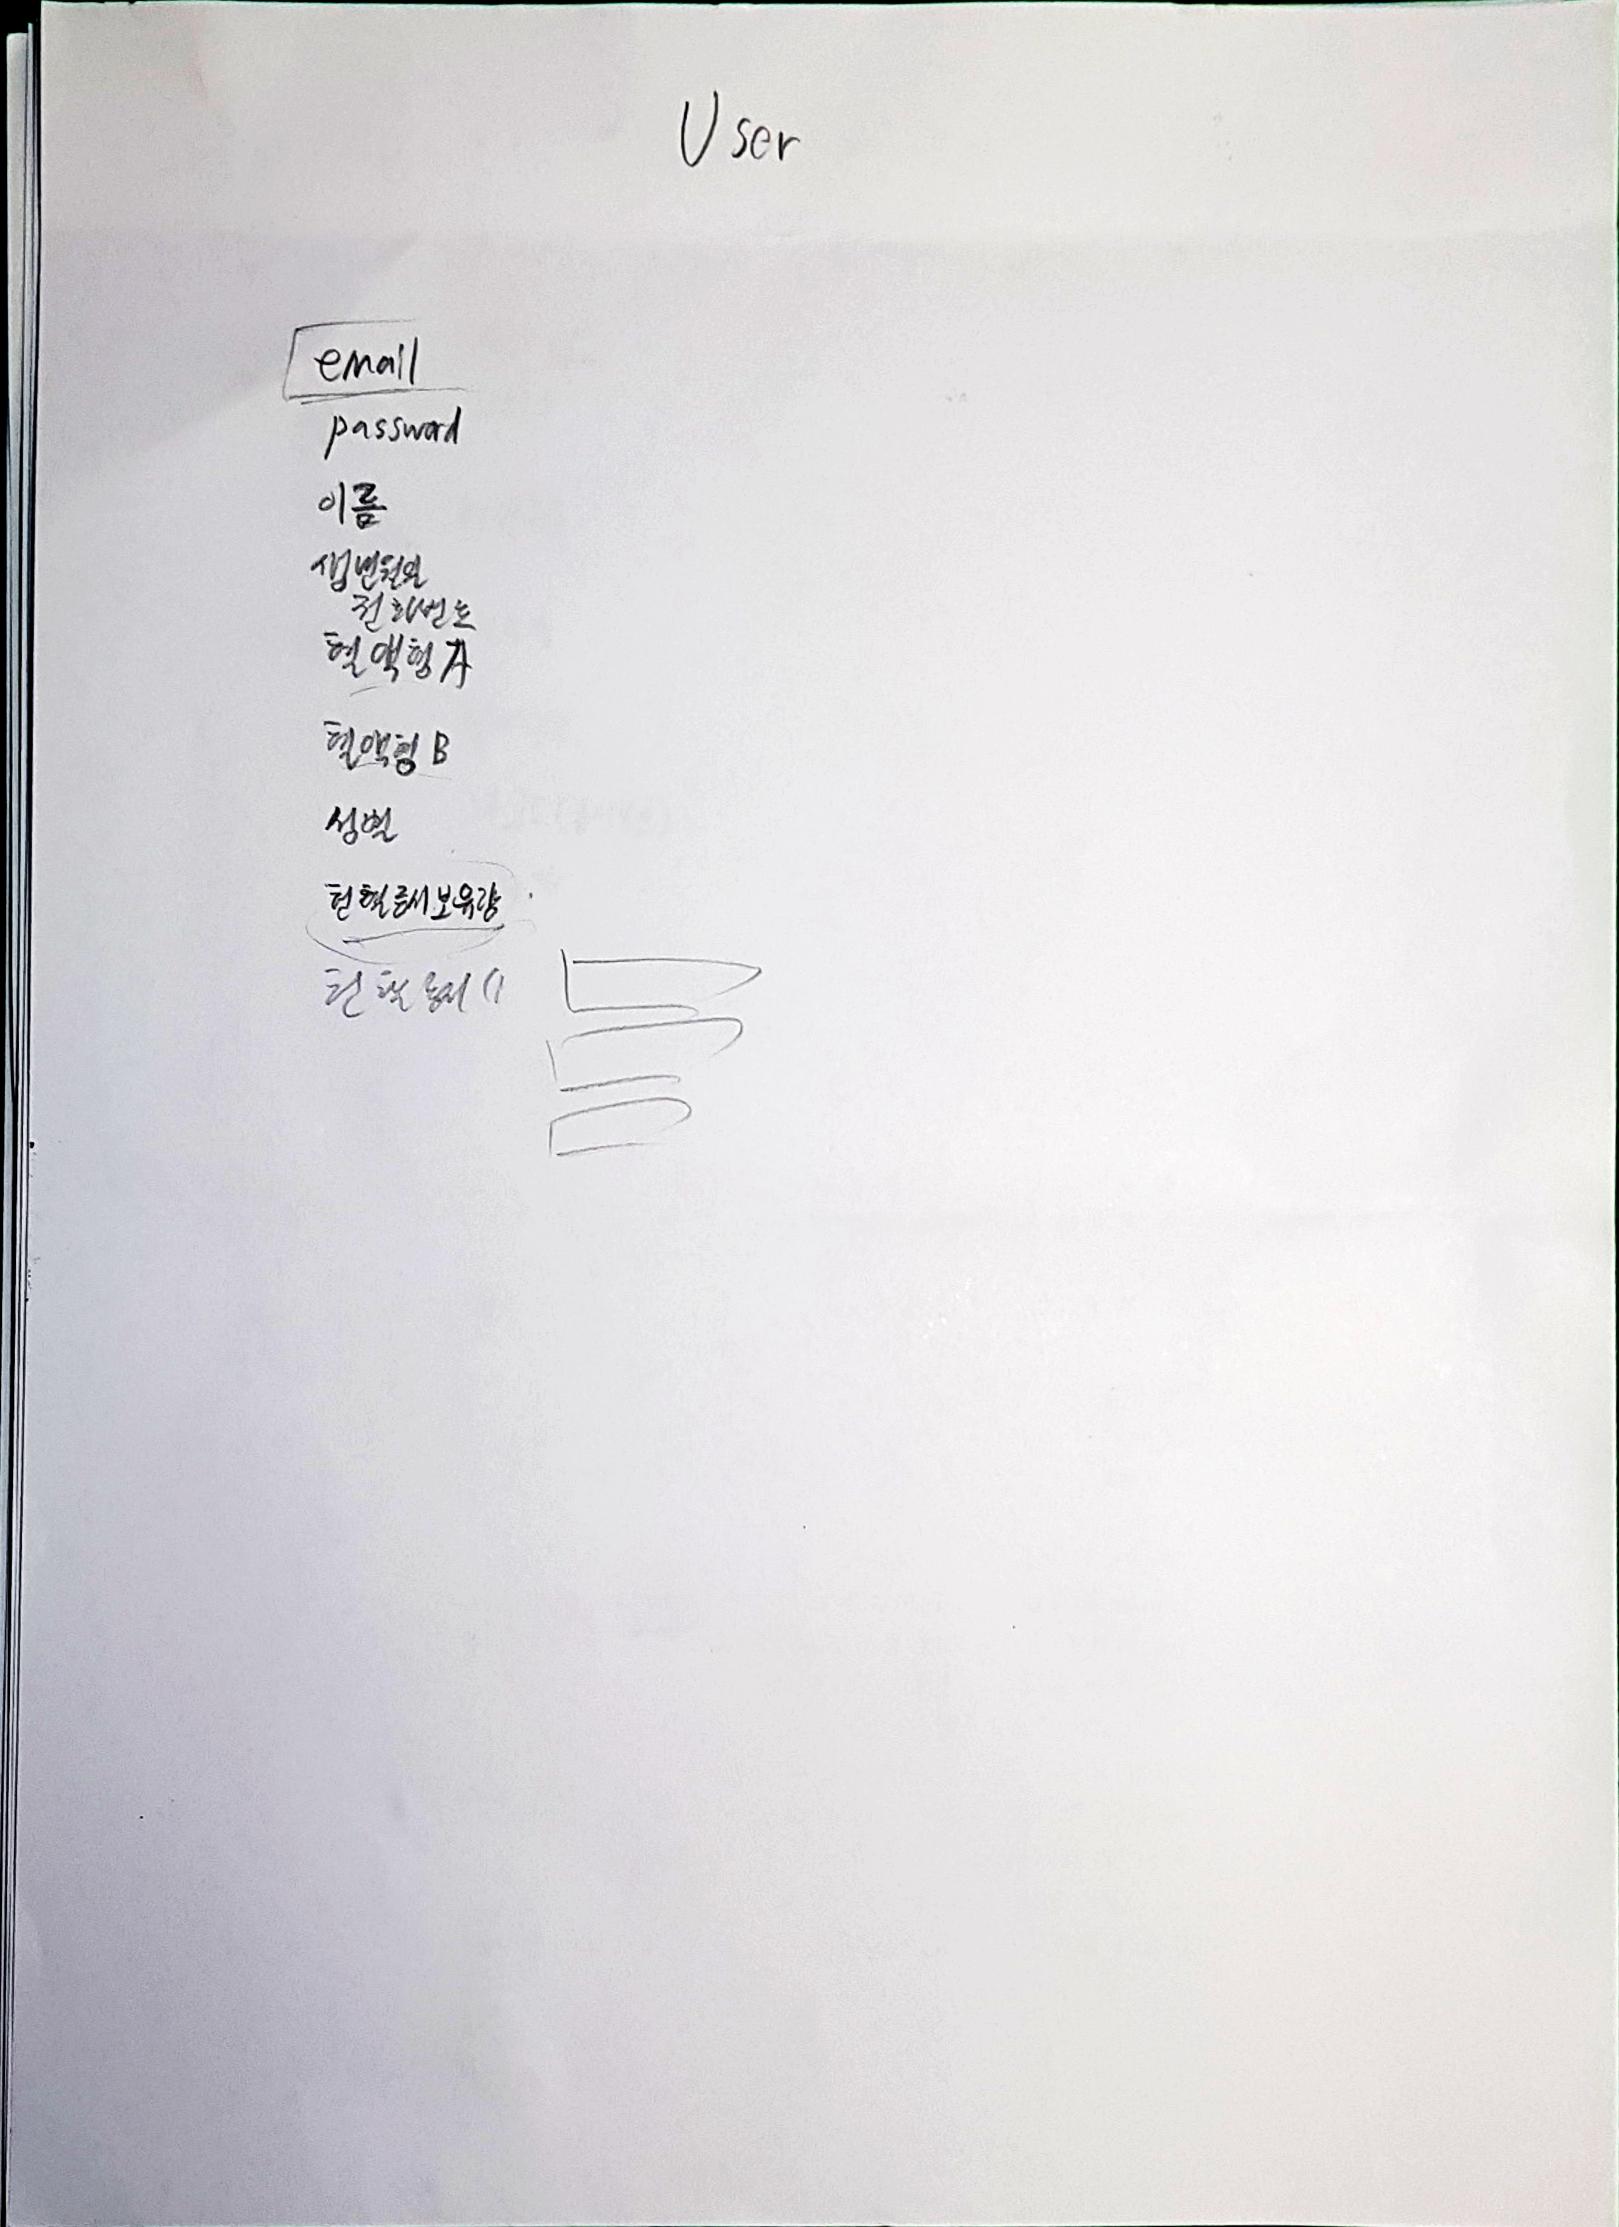 User
email
password
이름
생년월일
전화번호
혈액형 A
혈액형 B
성별
헌혈증서보유량
헌혈증서 ()